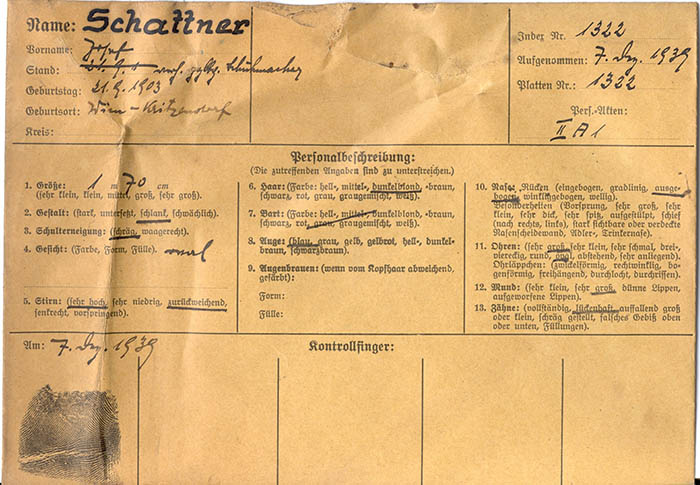 Name: Schattner
Vorname: Josef
Stand: verh. Schuhmacher
Geburtstag: 21.9.1903
Geburtsort: Wien-Kritzendorf
Kreis:
Index Nr. 1322
Aufgenommen: 7. Dez. 1939
Platten Nr.: 1322
Pers.-Akten:
II A 1
Personalbeschreibung:
(Die zutreffenden Angaben sind zu unterstreichen.)
1. Größe: 1 m 70 cm
(sehr klein, klein, mittel, groß, sehr groß).
2. Gestalt: (stark, untersetzt, schlank, schwächlich).
3. Schulterneigung: (schräg, waagerecht).
4. Gesicht: (Farbe, Form, Fülle). oval
5. Stirn: (sehr hoch, sehr niedrig, zurückweichend,
senkrecht, vorspringend).
6. Haar: (Farbe: hell-, mittel-, dunkelblond, -braun,
schwarz, rot, grau, graugemischt, weiß).
7. Bart: (Farbe: hell-, mittel-, dunkelblond, -braun,
schwarz, rot, grau, graugemischt, weiß).
8. Auge: (blau, grau, gelb, gelbrot, hell-, dunkel-
braun, schwarzbraun).
9. Augenbrauen: (wenn vom Kopfhaar abweichend,
gefärbt):
Form:
Fülle:
10. Nase: Rücken (eingebogen, gradlinig, ausge-
bogen, winkliggebogen, wellig).
Besonderheiten (Vorsprung, sehr groß, sehr
klein, sehr dick, sehr spitz, aufgestülpt, schief
(nach rechts, links), stark sichtbare oder verdeckte
Nasenscheidewand, Adler-, Trinkernase).
11. Ohren: (sehr groß, sehr klein, sehr schmal, drei-,
viereckig, rund, oval, abstehend, sehr anliegend).
Ohrläppchen: (zwickelförmig, rechtwinklig, bo-
genförmig, freihängend, durchlocht, durchrissen).
12. Mund: (sehr klein, sehr groß, dünne Lippen,
aufgeworfene Lippen).
13. Zähne: (vollständig, lückenhaft, auffallend groß
oder klein, schräg gestellt, falsches Gebiß oben
oder unten, Füllungen).
Am: 7. Dez. 1939
Kontrollfinger: